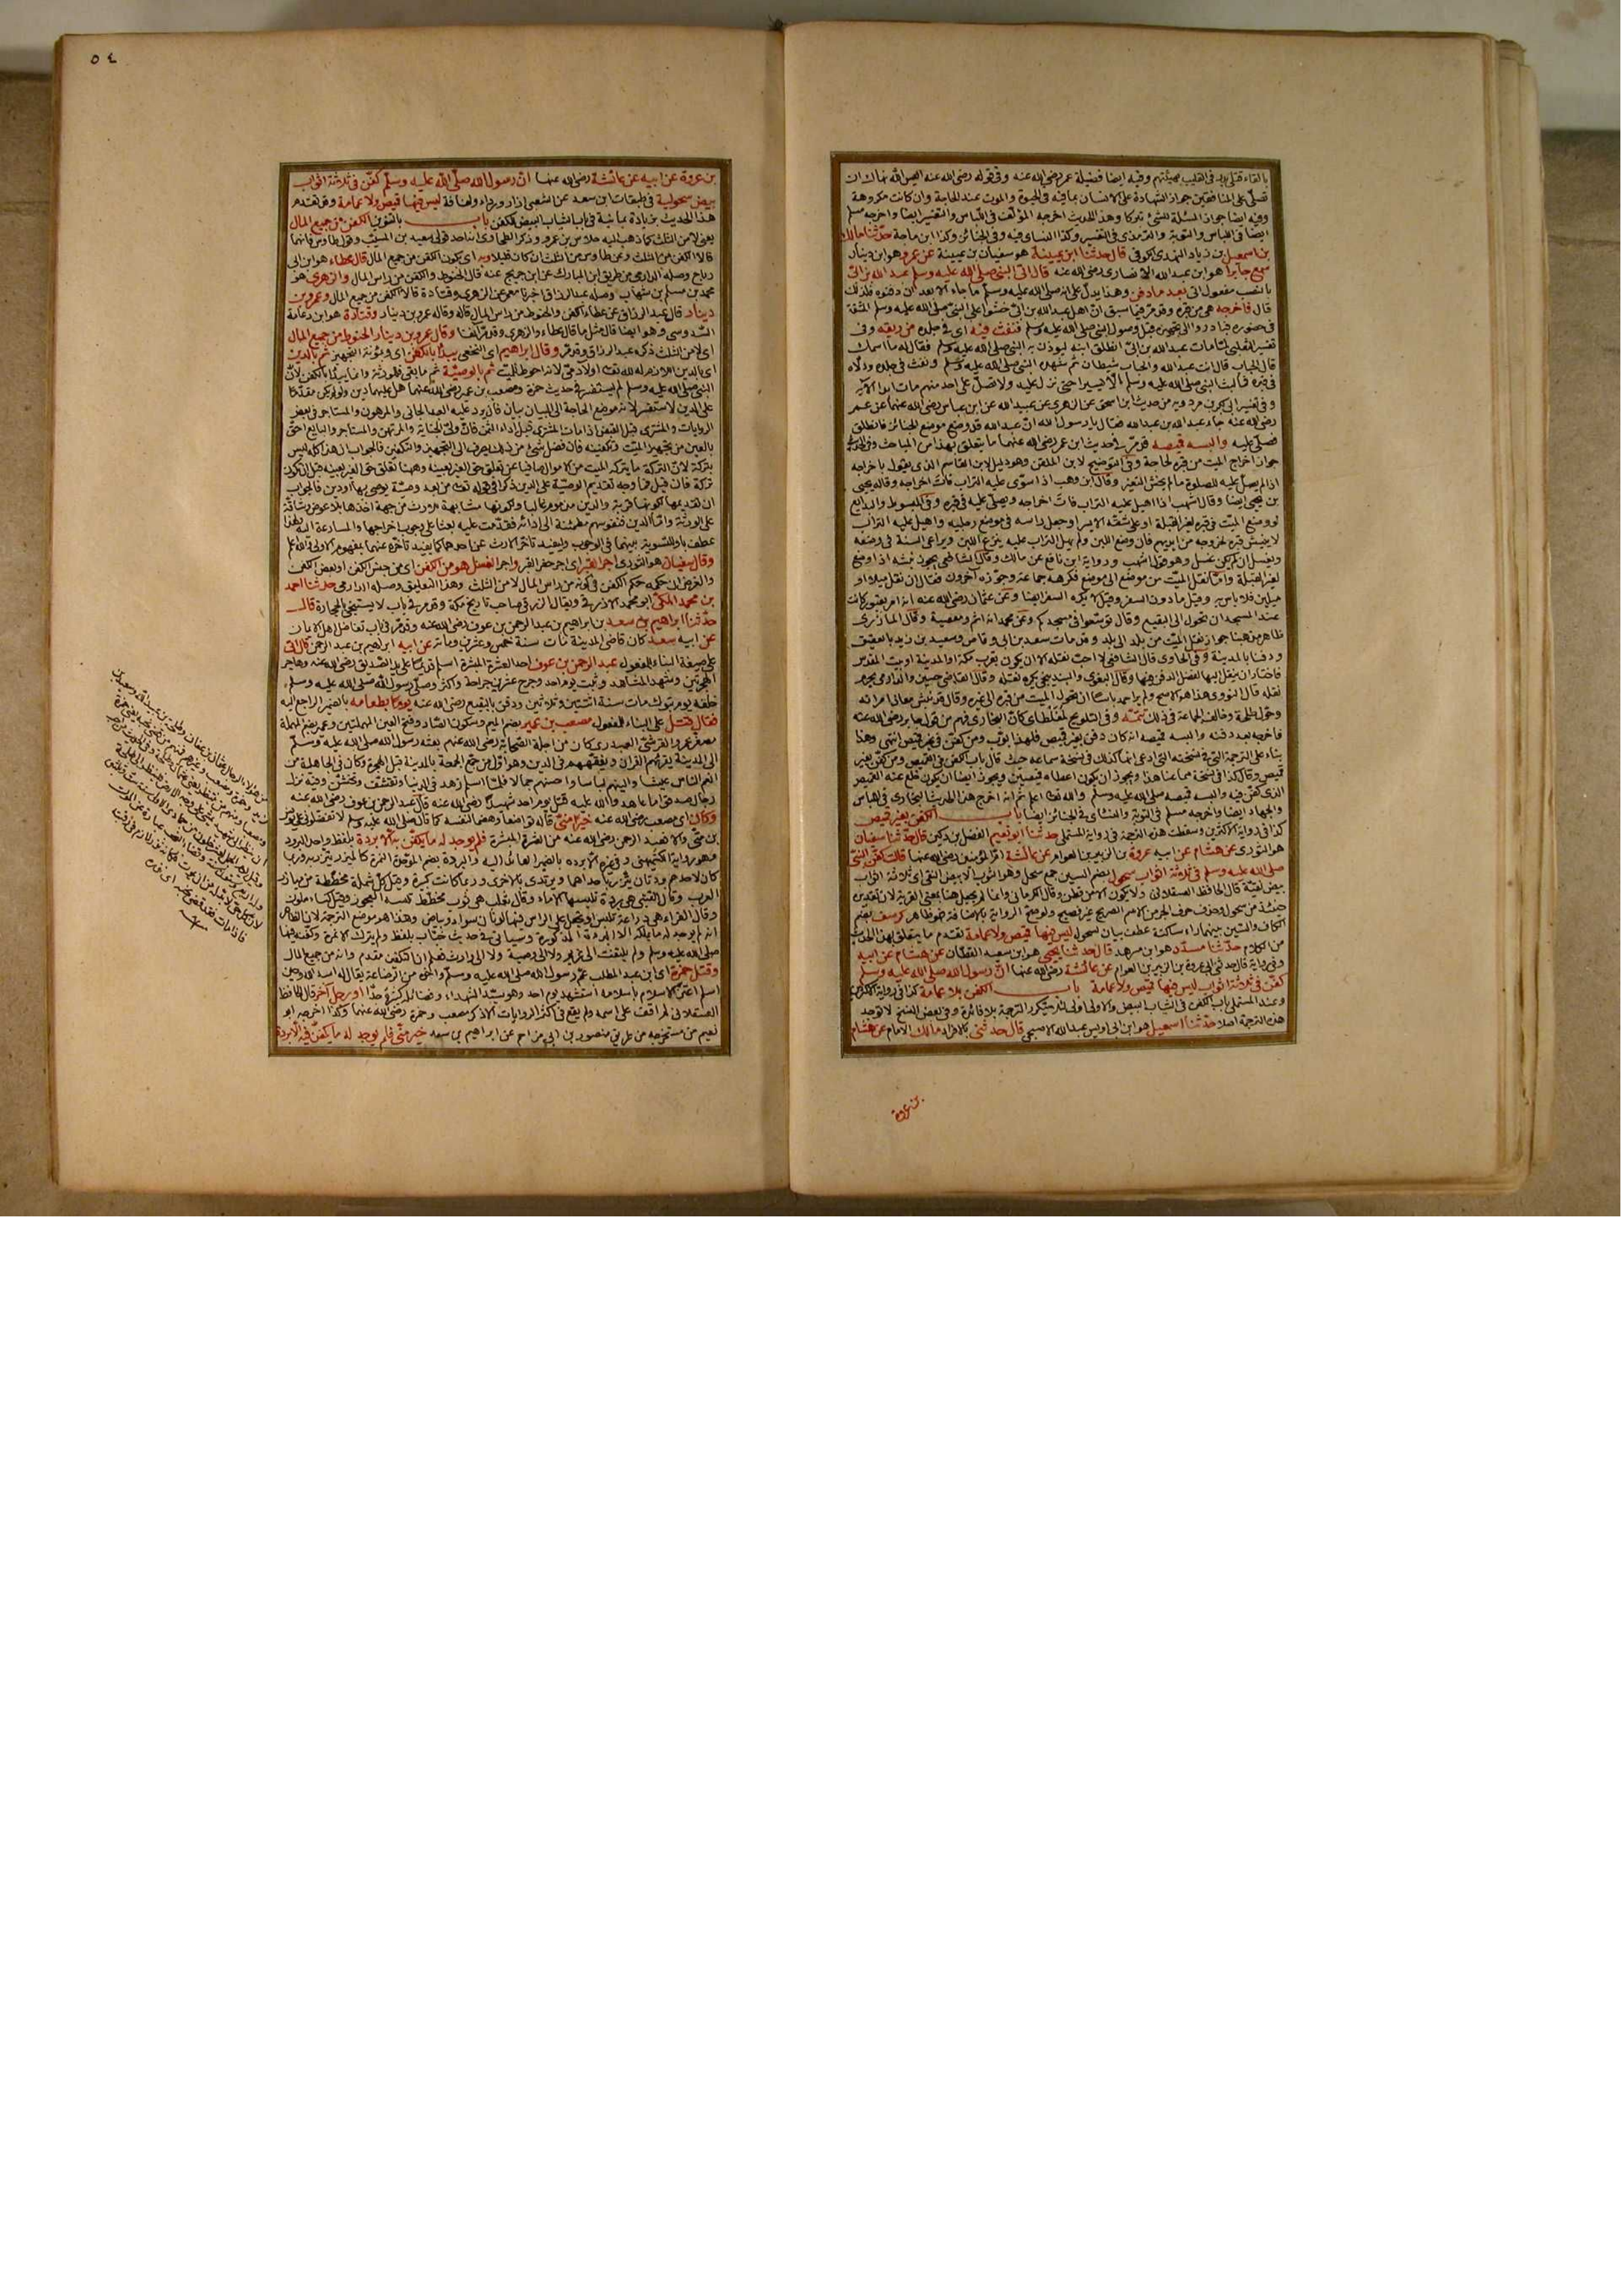 بالقاء قتلى بدر في القليب بهيئتهم وفيه ايضا فضيلة عمر رضي الله عنه وفي قوله رضي الله عنه اليس الله نهاك ان
تصلي على المنافقين جواز الشهادة على الانسان بما فيه في الحيوة والموت عند الحاجة وان كانت مكروهة
وفيه ايضا جواز المسئلة وهذا الحديث اخرجه المؤلف في اللباس والتفسير ايضا واخرجه مسلم
ايضا في اللباس والتوبة والترمذي في التفسير وكذا النساي فيه وفي الجنائز وكذا ابن ماجة حدثنا مالك
بن اسمعيل بن زياد النهدي الكوفي قال حدثنا ابن عيينة هو سفيان بن عيينة عن عمرو هو ابن دينار
سمع جابرا هو ابن عبد الله الانصاري رضي الله عنه قال اتى النبي صلى الله عليه وسلم عبد الله بن ابي
بالنصب مفعول اتى بعد ما دفن وهذا يدل على انه صلى الله عليه وسلم ما جاء الا بعد ان دفنوه فلذلك
قال فاخرجه من قبره وقد مر فيما سبق ان اهل عبد الله بن ابي خشوا على النبي صلى الله عليه وسلم المشقة
في حضوره فبادروا الى تجهيزه قبل وصول النبي صلى الله عليه وسلم فنفث فيه اي في جلده من ريقه وفي
تفسير الثعلبي لما مات عبد الله بن ابي انطلق ابنه ليؤذن به النبي صلى الله عليه وسلم فقال له ما اسمك
قال الحباب قال انت عبد الله والحباب شيطان ثم شهده النبي صلى الله عليه وسلم ونفث في جلده ودلاه
في قبره فما لبث النبي صلى الله عليه وسلم الا يسيرا حتى نزل عليه ولا تصل على احد منهم مات ابدا الآية
وفي تفسير ابي بكر بن مردويه من حديث ابن اسحق عن الزهري عن عبيد الله عن ابن عباس رضي الله عنهما عن عمر
رضي الله عنه جاء عبد الله بن عبد الله فقال يا رسول الله ان عبد الله قد وضع موضع الجنائز فانطلق
فصلى عليه والبسه قميصه قد مر في احديث ابن عمر رضي الله عنهما ما يتعلق بهذا من المباحث وفي الحديث
جواز اخراج الميت من قبره لحاجة وفي التوضيح لابن الملقن وهو دليل لابن القاسم الذي يقول باخراجه
اذا لم يصل عليه للصلوة ما لم يخش التغير وقال ابن وهب اذا سوي عليه التراب فات اخراجه وقاله يحيى
بن يحيى ايضا وقال اشهب اذا اهيل عليه التراب فات اخراجه ويصلى عليه في قبره وفي المبسوط والبدايع
لو وضع الميت في قبره لغير القبلة او على شقه الايسر او جعل راسه في موضع رجليه واهيل عليه التراب
لا ينبش قبره لخروجه من ايديهم فان وضع اللبن ولم يهل التراب عليه ينزع اللبن ويراعى السنة في وضعه
ويغسل ان لم يكن غسل وهو قول اشهب ورواية ابن نافع عن مالك وقال الشافعي يجوز نبشه اذا وضع
لغير القبلة واما نقل الميت من موضع الى موضع فكرهه جماعة وجوزه آخرون فقال ان نقل ميلا او
ميلين فلا باس به وقيل ما دون السفر وقيل لا يكره السفر ايضا وعن عثمان رضي الله عنه انه امر بقبور كانت
عند المسجد ان تحول الى البقيع وقال توسعوا في مسجدكم وعن محمد انه اثم ومعصية وقال المازري
ظاهر مذهبنا جواز نقل الميت من بلد الى بلد وقد مات سعد بن ابي وقاص وسعيد بن زيد بالعقيق
ودفنا بالمدينة وفي الحاوي قال الشافعي لا احب نقله الا ان يكون بقرب مكة او المدينة او بيت المقدس
فاختار ان ينقل اليها لفضل الدفن فيها وقال البغوي والبندنيجي يكره نقله وقال القاضي حسين والدارمي يحرم
نقله قال النووي هذا هو الاصح ولم ير احمد باسا ان يحول الميت من قبره الى غيره وقال قد نبش معاذ امراته
وحول طلحة وخالف الجماعة في ذلك تتمة وفي التلويح لمغلطاي كان البخاري فهم من قول جابر رضي الله عنه
فاخرجه بعد دفنه والبسه قميصه انه كان دفن بغير قميص فلهذا بوب ومن كفن في غير قميص انتهى وهذا
بناء على الترجمة التي في نسخته التي ادعى انما كذلك في نسخة سماعه حيث قال باب الكفن في القميص ومن كفن بغير
قميص وقال كذا في نسخة سماعنا هذا ويجوز ان يكون اعطاه قميصين ويجوز ايضا ان يكون خلع عنه القميص
الذي كفن فيه والبسه قميصه صلى الله عليه وسلم والله تعالى اعلم ثم انه اخرج هذا الحديث البخاري في اللباس
والجهاد ايضا واخرجه مسلم في التوبة والنسائي في الجنائز ايضا باب الكفن بغير قميص
كذا في رواية الاكثرين وسقطت هذه الترجمة في رواية المستملي حدثنا ابو نعيم الفضل بن دكين قال حدثنا سفيان
هو الثوري عن هشام عن ابيه عروة بن الزبير بن العوام عن عائشة ام المؤمنين رضي الله عنها قالت كفن النبي
صلى الله عليه وسلم في ثلاثة اثواب سحول بضم السين جمع سحل وهو الثوب الابيض النقي اي ثلاثة اثواب
بيض نقية قال الحافظ العسقلاني ولا يكون الا من قطن وقال الكرماني
حينئذ من سحول وحذف حرف الجر من الاسم الصريح غير فصيح ولو صح الرواية بالاضافة فهو ظاهر كرسف بضم
الكاف والسين بينهما راء ساكنة عطف بيان لسحول ليس فيها قميص ولا عمامة تقدم ما يتعلق بهذا الحديث
من الكلام حدثنا مسدد هو ابن مسرهد قال حدثنا يحيى هو ابن سعيد القطان عن هشام عن ابيه
وفي رواية قال حدثني ابي عروة بن الزبير بن العوام عن عائشة رضي الله عنها ان رسول الله صلى الله عليه وسلم
كفن في ثلاثة اثواب ليس فيها قميص ولا عمامة باب الكفن بلا عمامة كذا في رواية الاكثرين
وعند المستملي باب الكفن في الثياب البيض والاولى اولى لئلا يتكرر الترجمة بلا فائدة وفي بعض النسخ لا توجد
هذه الترجمة اصلا حدثنا اسمعيل هو ابن ابي اويس عبد الله الاصبحي قال حدثني بالافراد مالك الامام عن هشام
بن عروة
٥٤
بن عروة عن ابيه عن عائشة رضي الله عنها ان رسول الله صلى الله عليه وسلم كفن في ثلاثة اثواب
بيض سحولية في طبقات ابن سعد عن الشعبي ازار ورداء ولفافة ليس فيها قميص ولا عمامة وقد تقدم
هذا الحديث بزيادة يمانية في باب الثياب البيض للكفن باب بالتنوين الكفن من جميع المال
يعني لا من الثلث كما ذهب اليه خلاس بن عمرو وذكر الطحاوي انه احد قولي سعيد بن المسيب وقول طاوس فانهما
قالا الكفن من الثلث وعن طاوس من الثلث ان كان قليلا وبه اي بكون الكفن من جميع المال قال عطاء هو ابن ابي
رباح وصله الدارمي من طريق ابن المبارك عن ابن جريج عنه قال الحنوط والكفن من راس المال والزهري هو
محمد بن مسلم بن شهاب وصله عبد الرزاق اخبرنا معمر عن الزهري وقتادة قالا الكفن من جميع المال وعمرو بن
دينار قال عبد الرزاق عن عطاء الكفن والحنوط من راس المال قاله وقاله عمرو بن دينار وقتادة هو ابن دعامة
السدوسي وهو ايضا قال مثل ما قال عطاء والزهري وقد مر آنفا وقال عمرو بن دينار الحنوط من جميع المال
اي لا من الثلث ذكره عبد الرزاق وقد مر وقال ابراهيم اي النخعي يبدأ بالكفن اي ومؤنة التجهيز ثم بالدين
اي بالدين اللازم له لله تعالى او لآدمي لانه احوط للميت ثم بالوصية ثم ما بقي فللورثة وانما يبدأ بالكفن لان
النبي صلى الله عليه وسلم لم يستفسر في حديث حمزة ومصعب بن عمير رضي الله عنهما هل عليهما دين ولو لم يكن مقدما
على الدين لاستفسر لانه موضع الحاجة الى البيان بيان فان يرد عليه العبد الجاني والمرهون والمستاجر في بعض
الروايات والمشتري قبل القبض اذا مات المشتري قبل اداء الثمن فان ولي الجناية والمرتهن والمستاجر والبايع احق
بالعين من تجهيز الميت وتكفينه فان فضل شئ من ذلك يصرف الى التجهيز والتكفين فالجواب ان هذا كله ليس
بتركة لان التركة ما يتركه الميت من الاموال صافيا عن تعلق حق الغير بعينه وههنا تعلق حق الغير بعينه قبل ان يكون
تركة فان قيل فما وجه تقديم الوصية على الدين ذكرا في قوله تعالى من بعد وصية يوصى بها او دين فالجواب
على الورثة واما الدين فنفوسهم مطمئنة الى ادائه فقدمت عليه بعثا على وجوب اخراجها والمسارعة اليه فلهذا
عطف باو للتسوية بينهما في الوجوب وليفيد تاخر الارث عن احدهما كما يفيد تاخره عنهما بمفهوم الاولى والله اعلم
وقال سفيان هو الثوري اجر القبر اي اجر حفر القبر واجر الغسل هو من الكفن اي من جنس الكفن او بعض الكفن
والغرض ان حكمه حكم الكفن في كونه من راس المال لا من الثلث وهذا التعليق وصله الدارمي حدثنا احمد
بن محمد المكي ابو محمد الازرقي ويقال الزرقي صاحب تاريخ مكة وقد مر في باب لا يستنجي بالحجارة قال
حدثنا ابراهيم بن سعد بن ابراهيم بن عبد الرحمن بن عوف رضي الله عنه وقد مر في باب تفاضل اهل الايمان
عن ابيه سعد كان قاضي المدينة مات سنة خمس وعشرين ومائة عن ابيه ابراهيم بن عبد الرحمن قال اتي
على صيغة البناء للمفعول عبد الرحمن بن عوف احد العشرة المبشرة اسلم قديما على يد الصديق رضي الله عنه وهاجر
الهجرتين وشهد المشاهد وثبت يوم احد وجرح عشرين جراحة واكثر وصلى رسول الله صلى الله عليه وسلم
خلفه يوم تبوك مات سنة اثنتين وثلاثين ودفن بالبقيع رضي الله عنه يوما بطعامه بالضمير الراجع اليه
فقال قتل على البناء للمفعول مصعب بن عمير بضم الميم وسكون الصاد وفتح العين المهملتين وعمير بضم المهملة
مصغر عمرو القرشي العبدري كان من اجلة الصحابة رضي الله عنهم بعثه رسول الله صلى الله عليه وسلم
الى المدينة يقرئهم القرآن ويفقههم في الدين وهو اول من جمع الجمعة بالمدينة قبل الهجرة وكان في الجاهلية من
انعم الناس عيشا والينهم لباسا واحسنهم جمالا فلما اسلم زهد في الدنيا وتقشف وفيه نزل
رجال صدقوا ما عاهدوا الله عليه قتل يوم احد شهيدا رضي الله عنه قال عبد الرحمن بن عوف رضي الله عنه
وكان اي مصعب رضي الله عنه خيرا مني قاله تواضعا وهضما لنفسه كما قال صلى الله عليه وسلم لا تفضلوني على يونس
بن متى والا فعبد الرحمن رضي الله عنه من العشرة المبشرة فلم يوجد له ما يكفن به الا بردة بلفظ واحد البرود
وهو رواية الكشميهني وفي غيره الا برده بالضمير العائد اليه والبردة بضم الموحدة النمرة كالمئزر
كان لاحدهم بردتان يئتزر باحداهما ويرتدي بالاخرى وربما كانت كبيرة وقيل كل شملة مخططة من مآزر
العرب وقال القتبي هي بردة تلبسها الاماء وقال ثعلب هي ثوب مخطط
وقال القزاز هي دراعة تلبس او تجعل على الراس فيها لونان سواد وبياض وهذا هو موضع الترجمة لان الظاهر
انه لم يوجد له ما يملكه الا البردة المذكورة وسيأتي في حديث خباب بلفظ ولم يترك الا نمرة وكفنه فيها
صلى الله عليه وسلم ولم يلتفت الى غريم ولا الى وصية ولا الى وارث فعلم ان التكفن مقدم وانه من جميع المال
وقتل حمزة اي ابن عبد المطلب عم رسول الله صلى الله عليه وسلم واخوه من الرضاعة يقال له اسد الله وحين
اسلم اعتز الاسلام باسلامه استشهد يوم احد وهو سيد الشهداء وفضائله كثيرة جدا او رجل آخر قال الحافظ
العسقلاني لم اقف على اسمه ولم يقع في اكثر الروايات الا ذكر مصعب وحمزة رضي الله عنهما وكذا اخرجه ابو
نعيم في مستخرجه من طريق منصور بن ابي مزاحم عن ابراهيم بن سعد خير مني فلم يوجد له ما يكفن فيه الا بردة